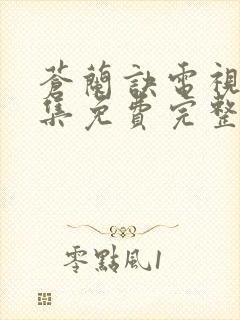 蒼蘭訣電視
集免費完整
零點風1